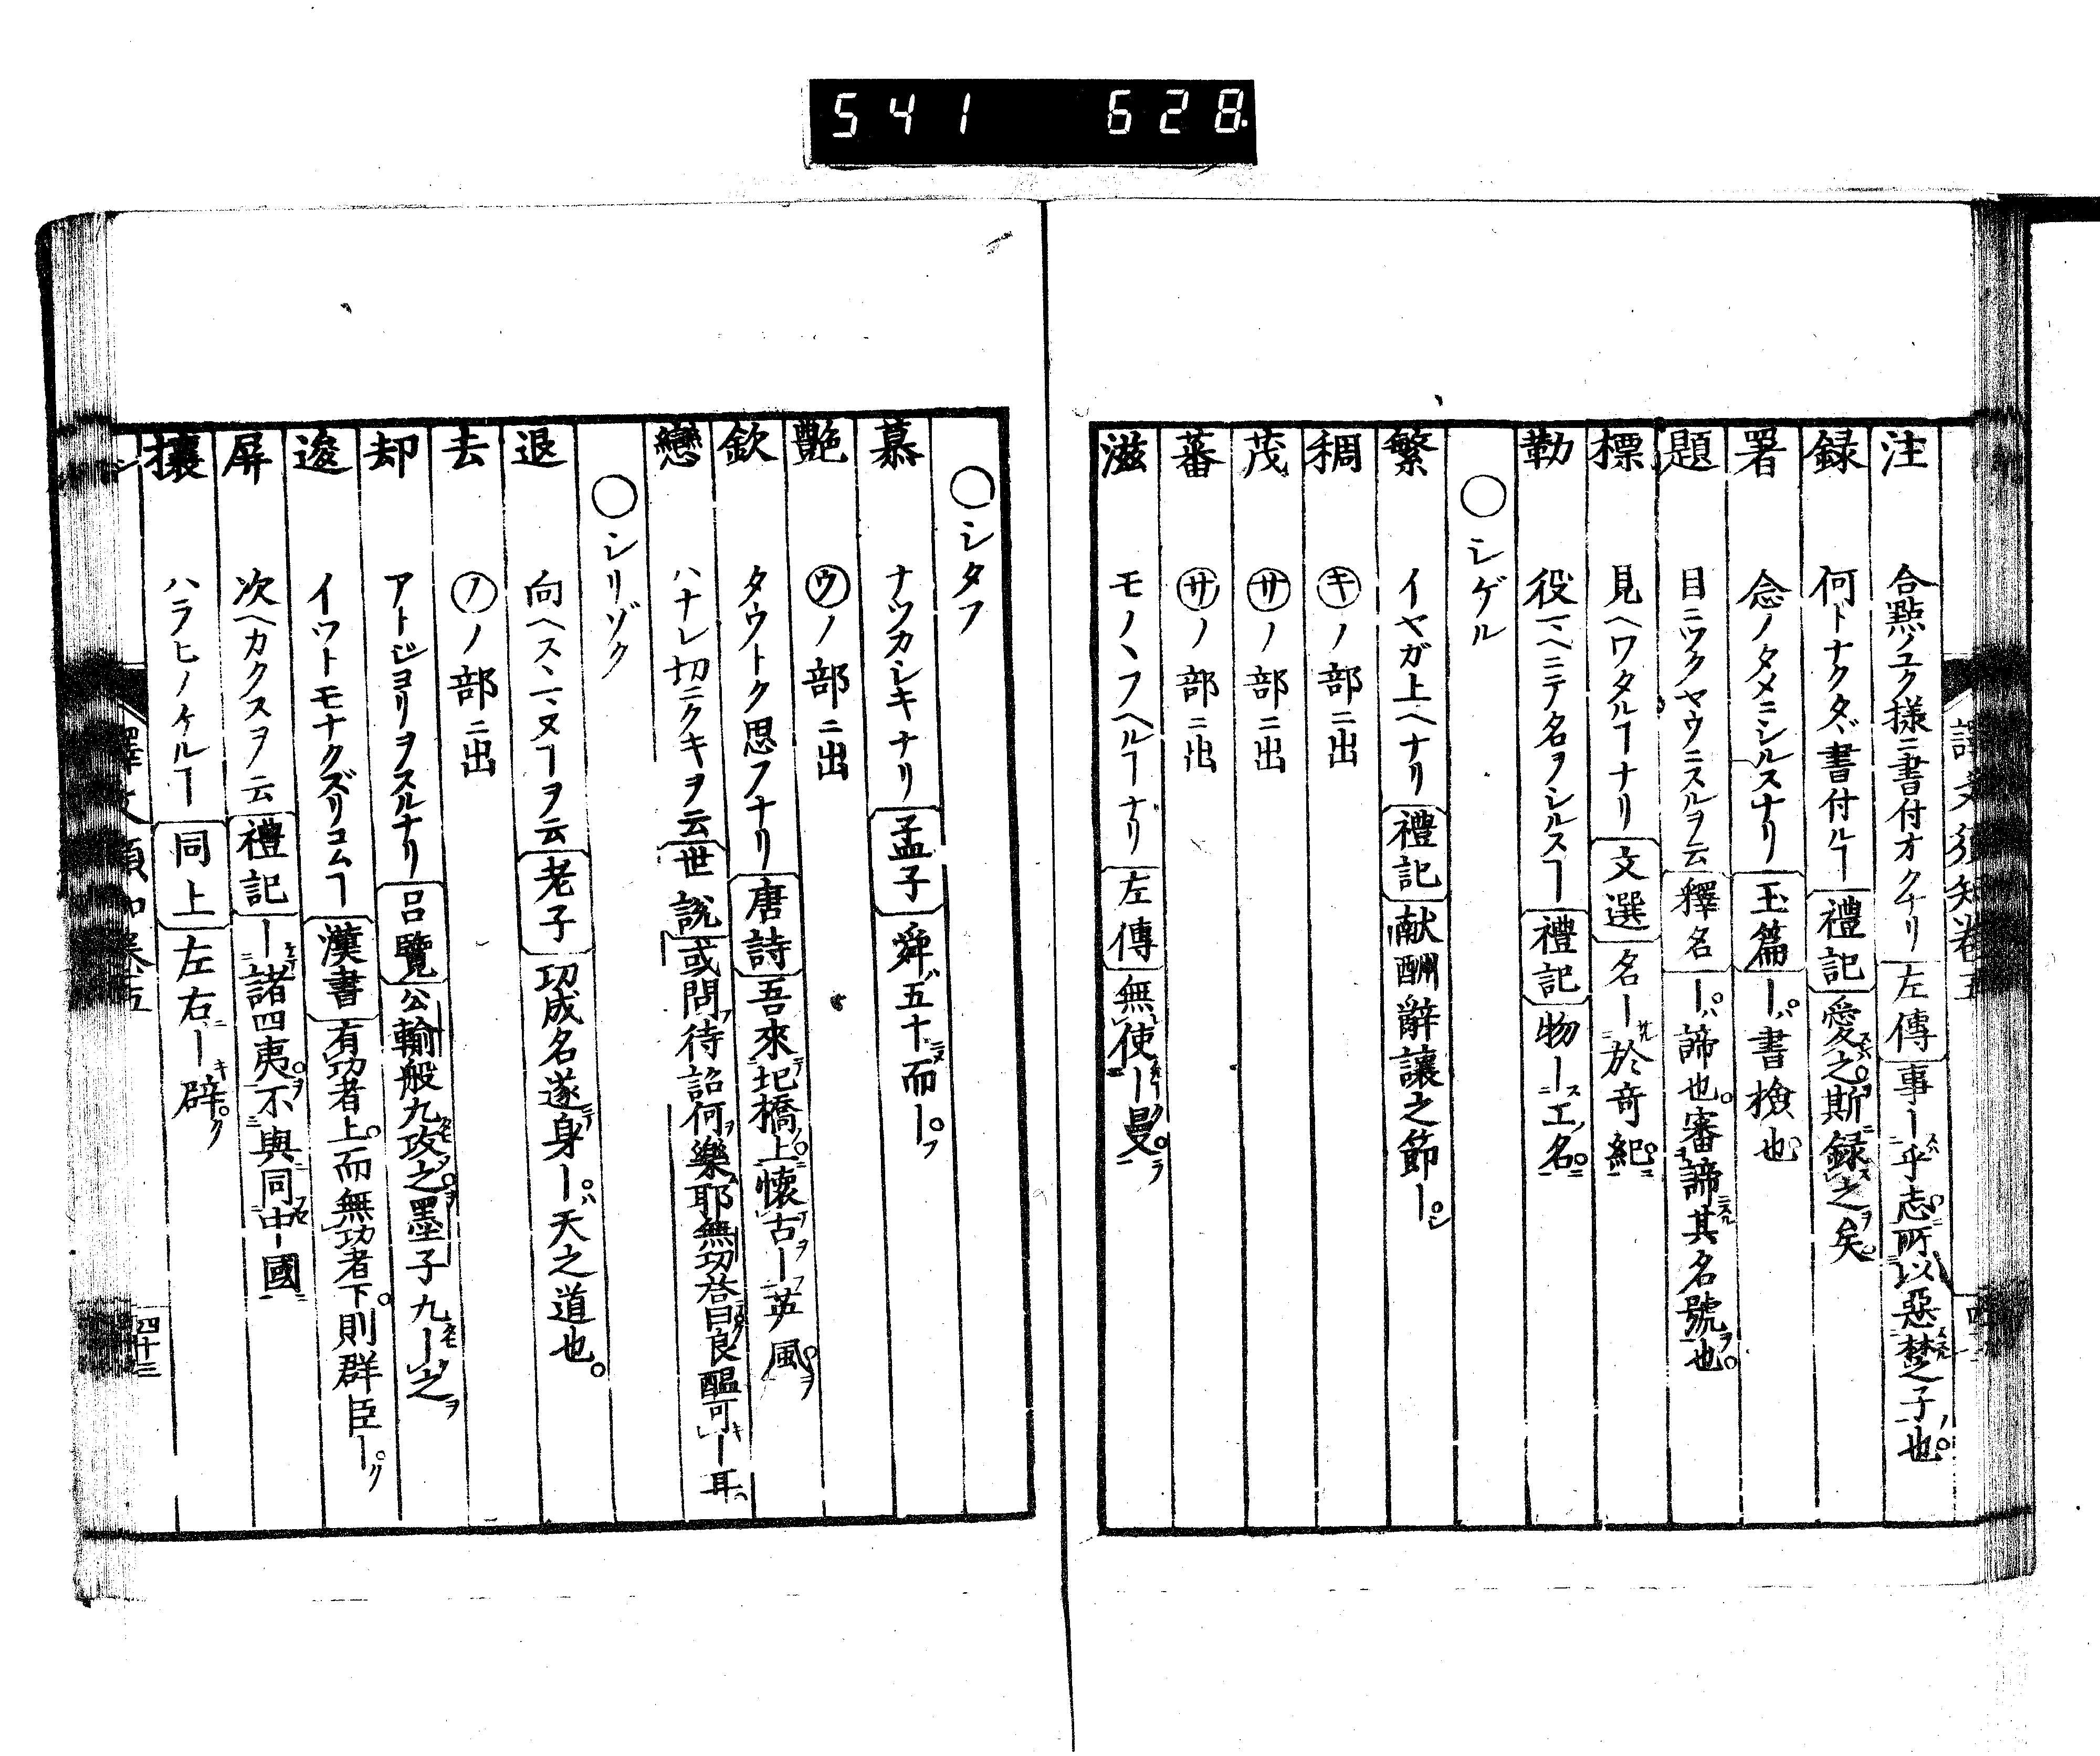 541 628
譯文須知卷五
注 合點ノユク様ニ書付オクナリ 左傳 事ー乎志所以惡楚子也
録 何トナクタヾ書付ルヿ 禮記 愛之斯録之矣
署 念ノタメニシルスナリ 玉篇 ー書檢也
題 目ニツクヤウニスルヲ云 釋名 ー諦也審諦其名號也
標 見ヘワタルヿナリ 文選 名ー於奇紀
勒 役マヘニテ名ヲシルスヿ 禮記 物ー工名
○シゲル
繁 イヤガ上ヘナリ 禮記 献酬辭讓之節ー
稠 キノ部ニ出
茂 サノ部ニ出
蕃 サノ部ニ出
滋 モノヽフヘルヿナリ 左傳 無使ー曼
○シタフ
慕 ナツカシキナリ 孟子 舜五十而ー
艶 ウノ部ニ出
欽 タウトク思フナリ 唐詩 吾來圯橋上懷古ー英風
戀 ハナレ切ニクキヲ云 世說 或問待詔何樂耶無功答曰良醞可ー耳
○シリゾク
退 向ヘスヽマヌヿヲ云 老子 功成名遂身ー天之道也
去 ノノ部ニ出
却 アトジヨリヲスルナリ 呂覽 公輸般九攻之墨子九ー之
逡 イツトモナクズリコムヿ 漢書 有功者上而無功者下則群臣ー
屏 次ヘカクスヲ云 禮記 ー諸四夷不與同中國
攘 ハラヒノケルヿ 同上 左右ー辟
四十三